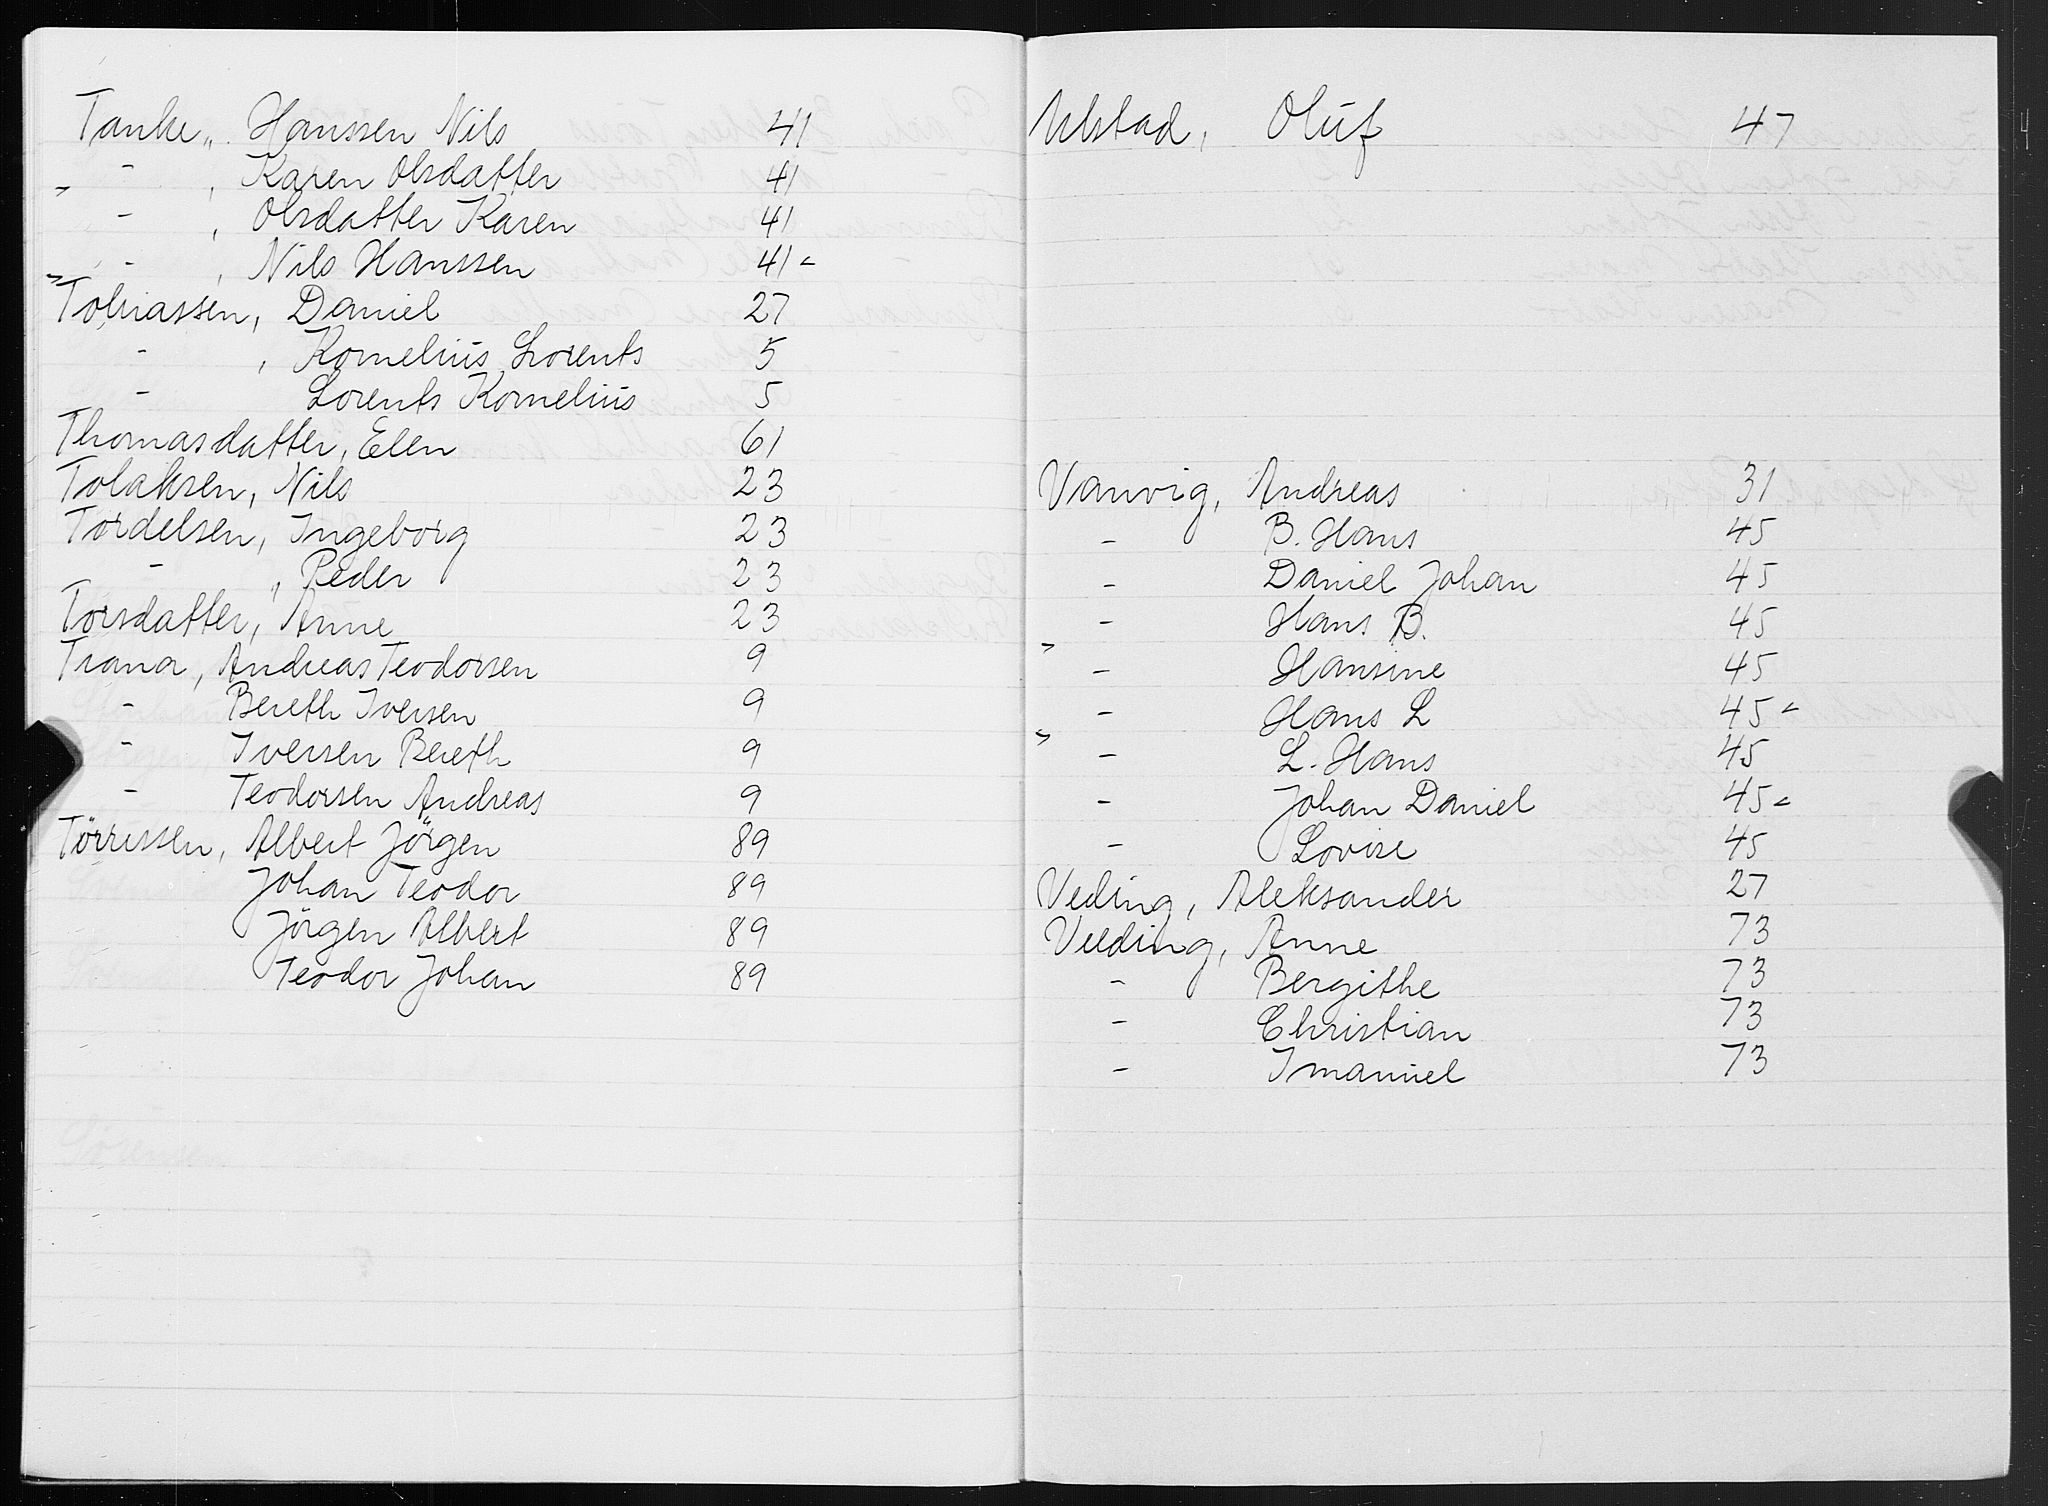 Tanke, Hanssen Nils 41
" - , Karen Olsdatter 41
- , Olsdatter Karen 41
- , Nils Hanssen 41 -
" Tobiassen, Daniel 27
- , Kornelius Lorents 5
- Lorents Kornelius 5
Thomasdatter, Elen 61
Tolaksen, Nils 23
Tordelsen, Ingeborg 23
- , Peder 23
Torsdatter, Anne 23
Trana, Andreas Teodorsen 9
- Bereth Iversen 9
- Iversen Bereth 9
- Teodorsen Andreas 9
Törrissen, Albert Jörgen 89
Johan Teodor 89
Jörgen Albert 89
Teodor Johan 89
Ulstad, Oluf 47
Vanvig, Andreas 31
- B. Hans 45
- Daniel Johan 45
- Hans B. 45
" - Hansine 45
- Hans L 45 -
" - L. Hans 45
- Johan Daniel 45 -
- Lovise 45
Veding, Aleksander 27
Veeding, Anne 73
- Bergithe 73
- Christian 73
- Imanuel 73